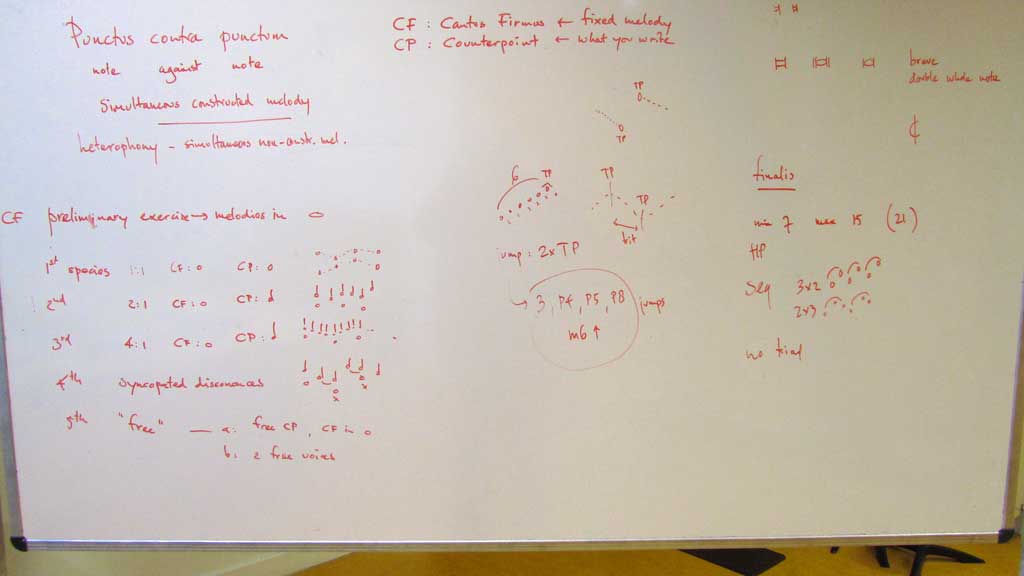 Punctus contra punctum
note against note
simultaneous constructed melody
heterophony - simultaneous non-constr. mel.
CF : Cantus Firmus ← fixed melody
CP : Counterpoint ← what you write
CF preliminary exercise → melodios in o
1st species 1:1 CF: o CP: o
2nd 2:1 CF: o CP:
3rd 4:1 CF: o CP:
4th syncopated dissonances
5th "free" — a: free CP, CF in o
b: 2 free voices
TP
TP
6 TP
TP
TP
bit
jump : 2xTP
→ 3, P4, P5, P8 jumps
m6 ↑
breve
double whole note
¢
finalis
min 7 max 15 (21)
HP
Seq 3x2
2x3
no triad